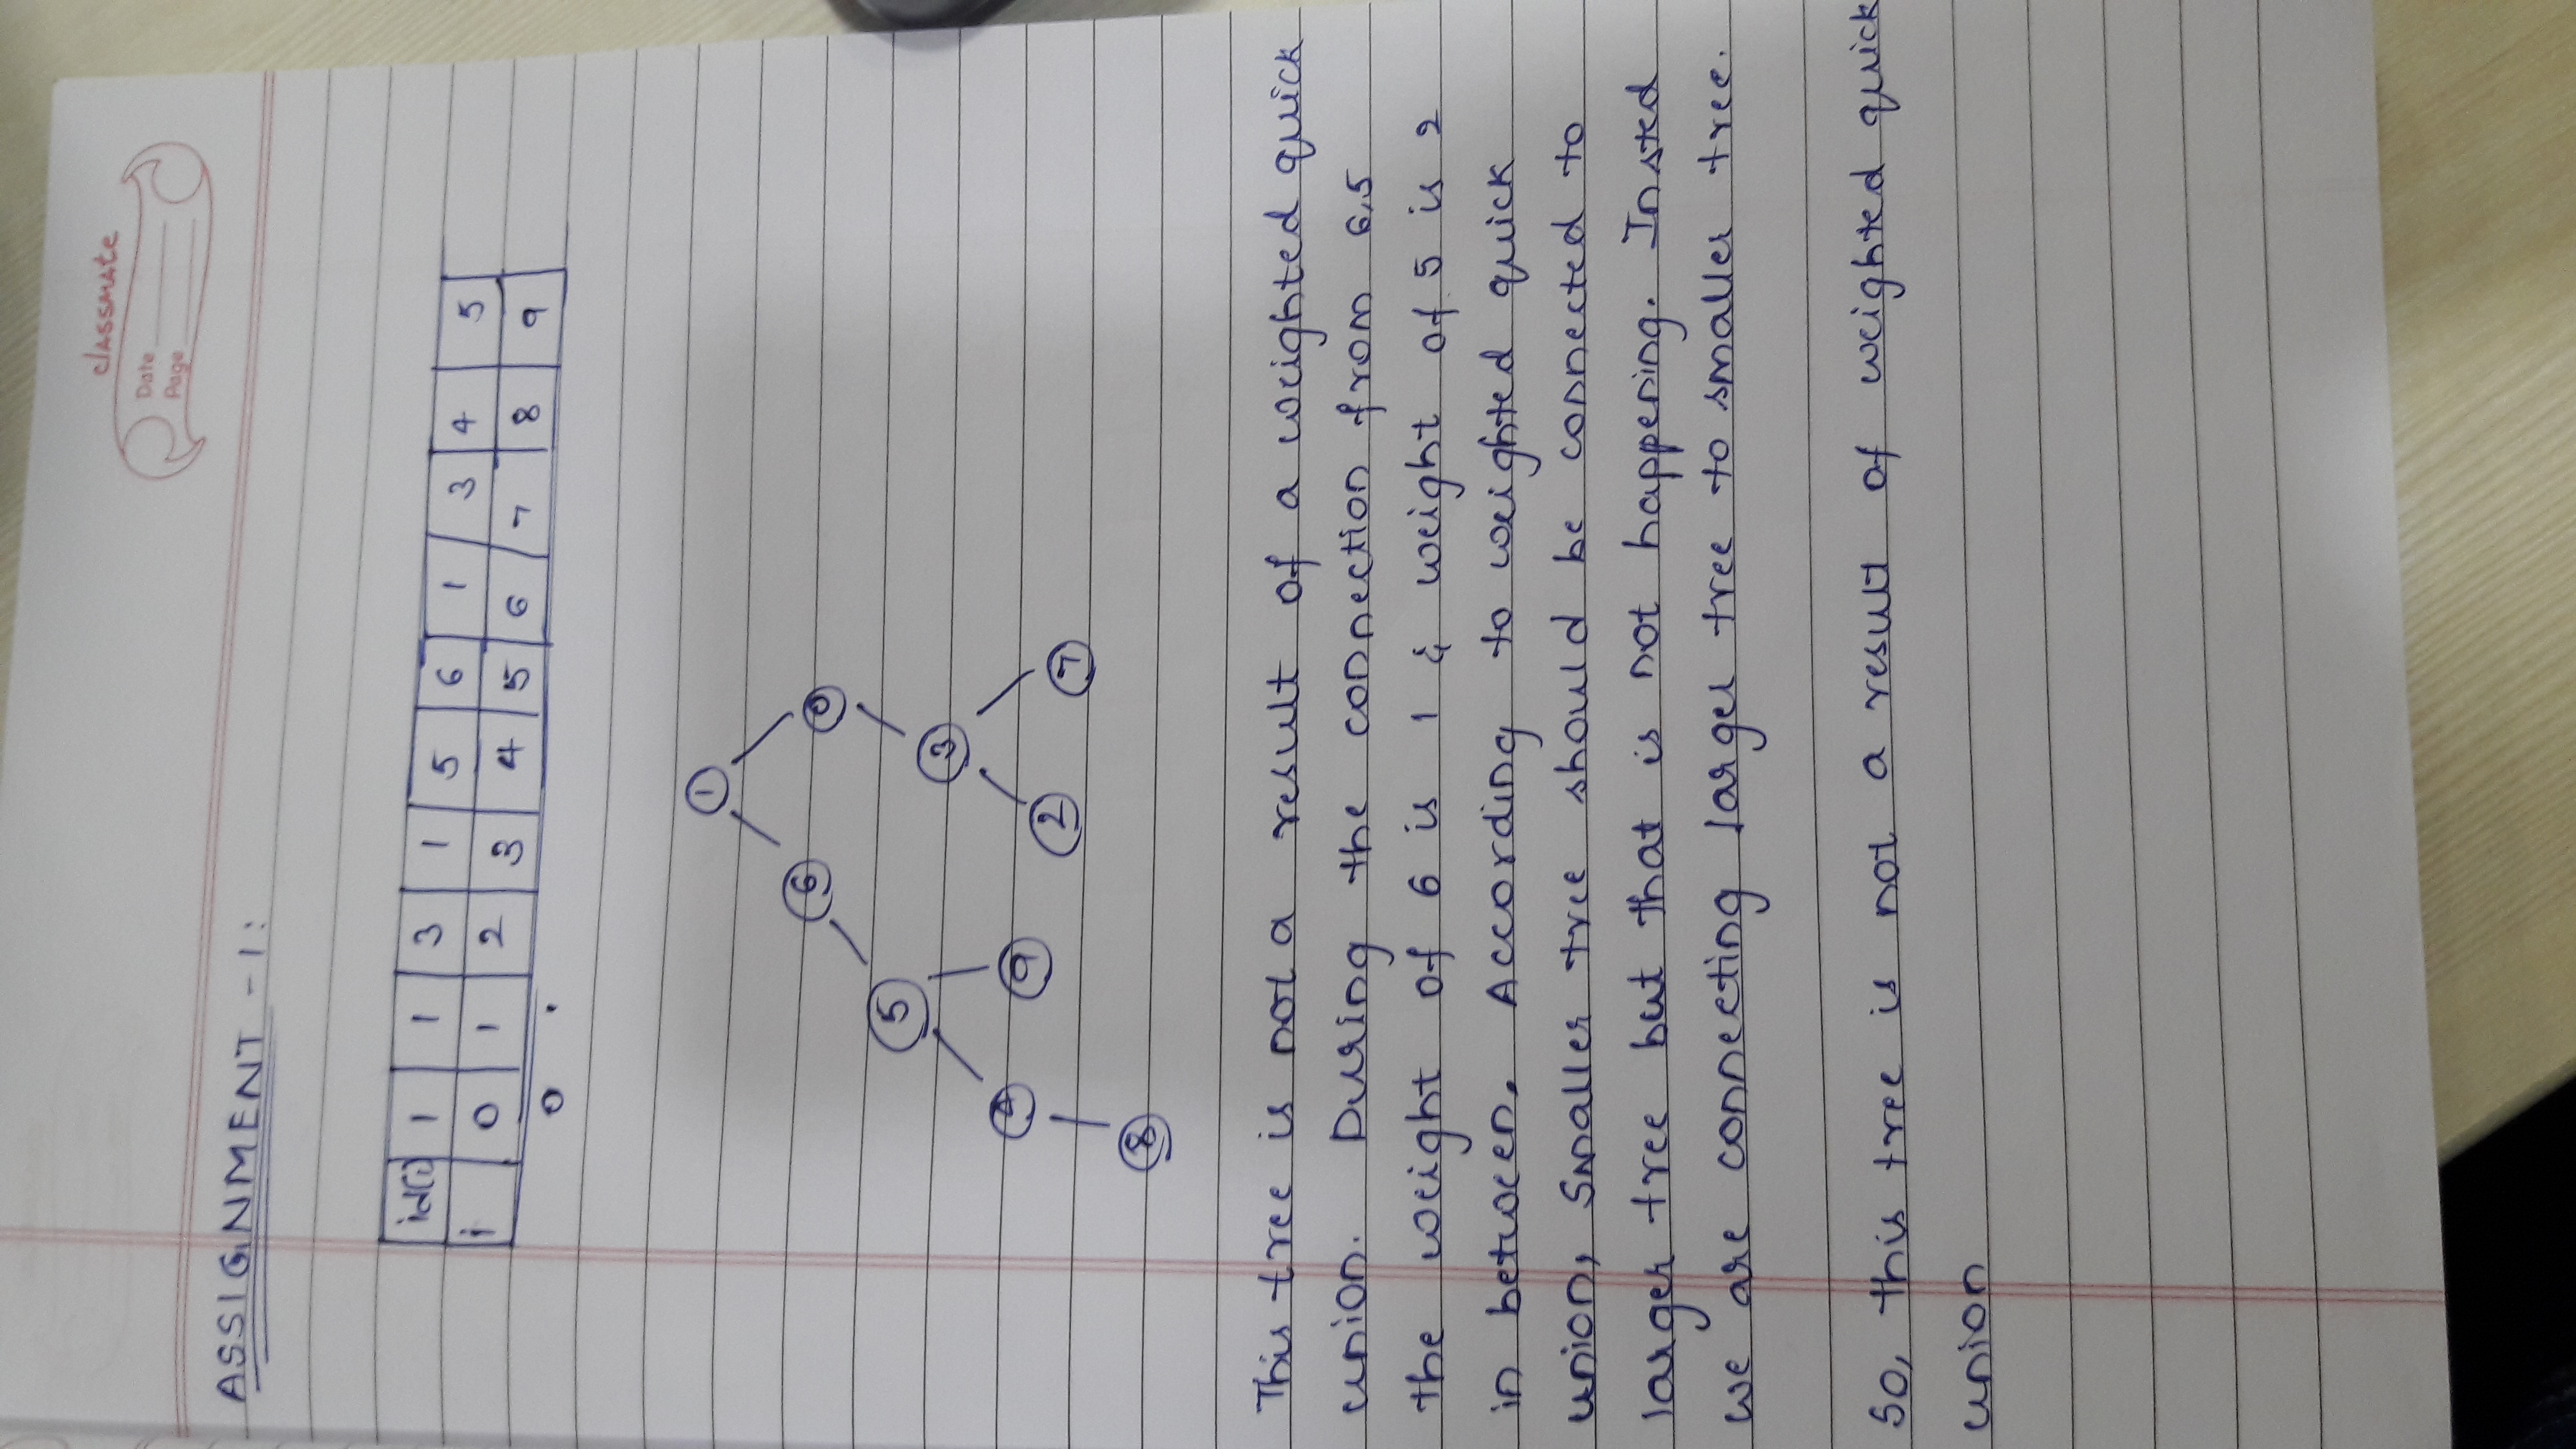 classmate
Date
Page
ASSIGNMENT - 1:
id(i) 1 1 3 1 5 6 1 3 4 5
i 0 1 2 3 4 5 6 7 8 9
0
1
6 0
5
3
4 9
2 7
8
This tree is not a result of a weighted quick
union. During the connection from 6,5
the weight of 6 is 1 & weight of 5 is 2
in between. According to weighted quick
union, Smaller tree should be connected to
larger tree but that is not happening. Insted
we are connecting larger tree to smaller tree.
So, this tree is not a result of weighted quick
union